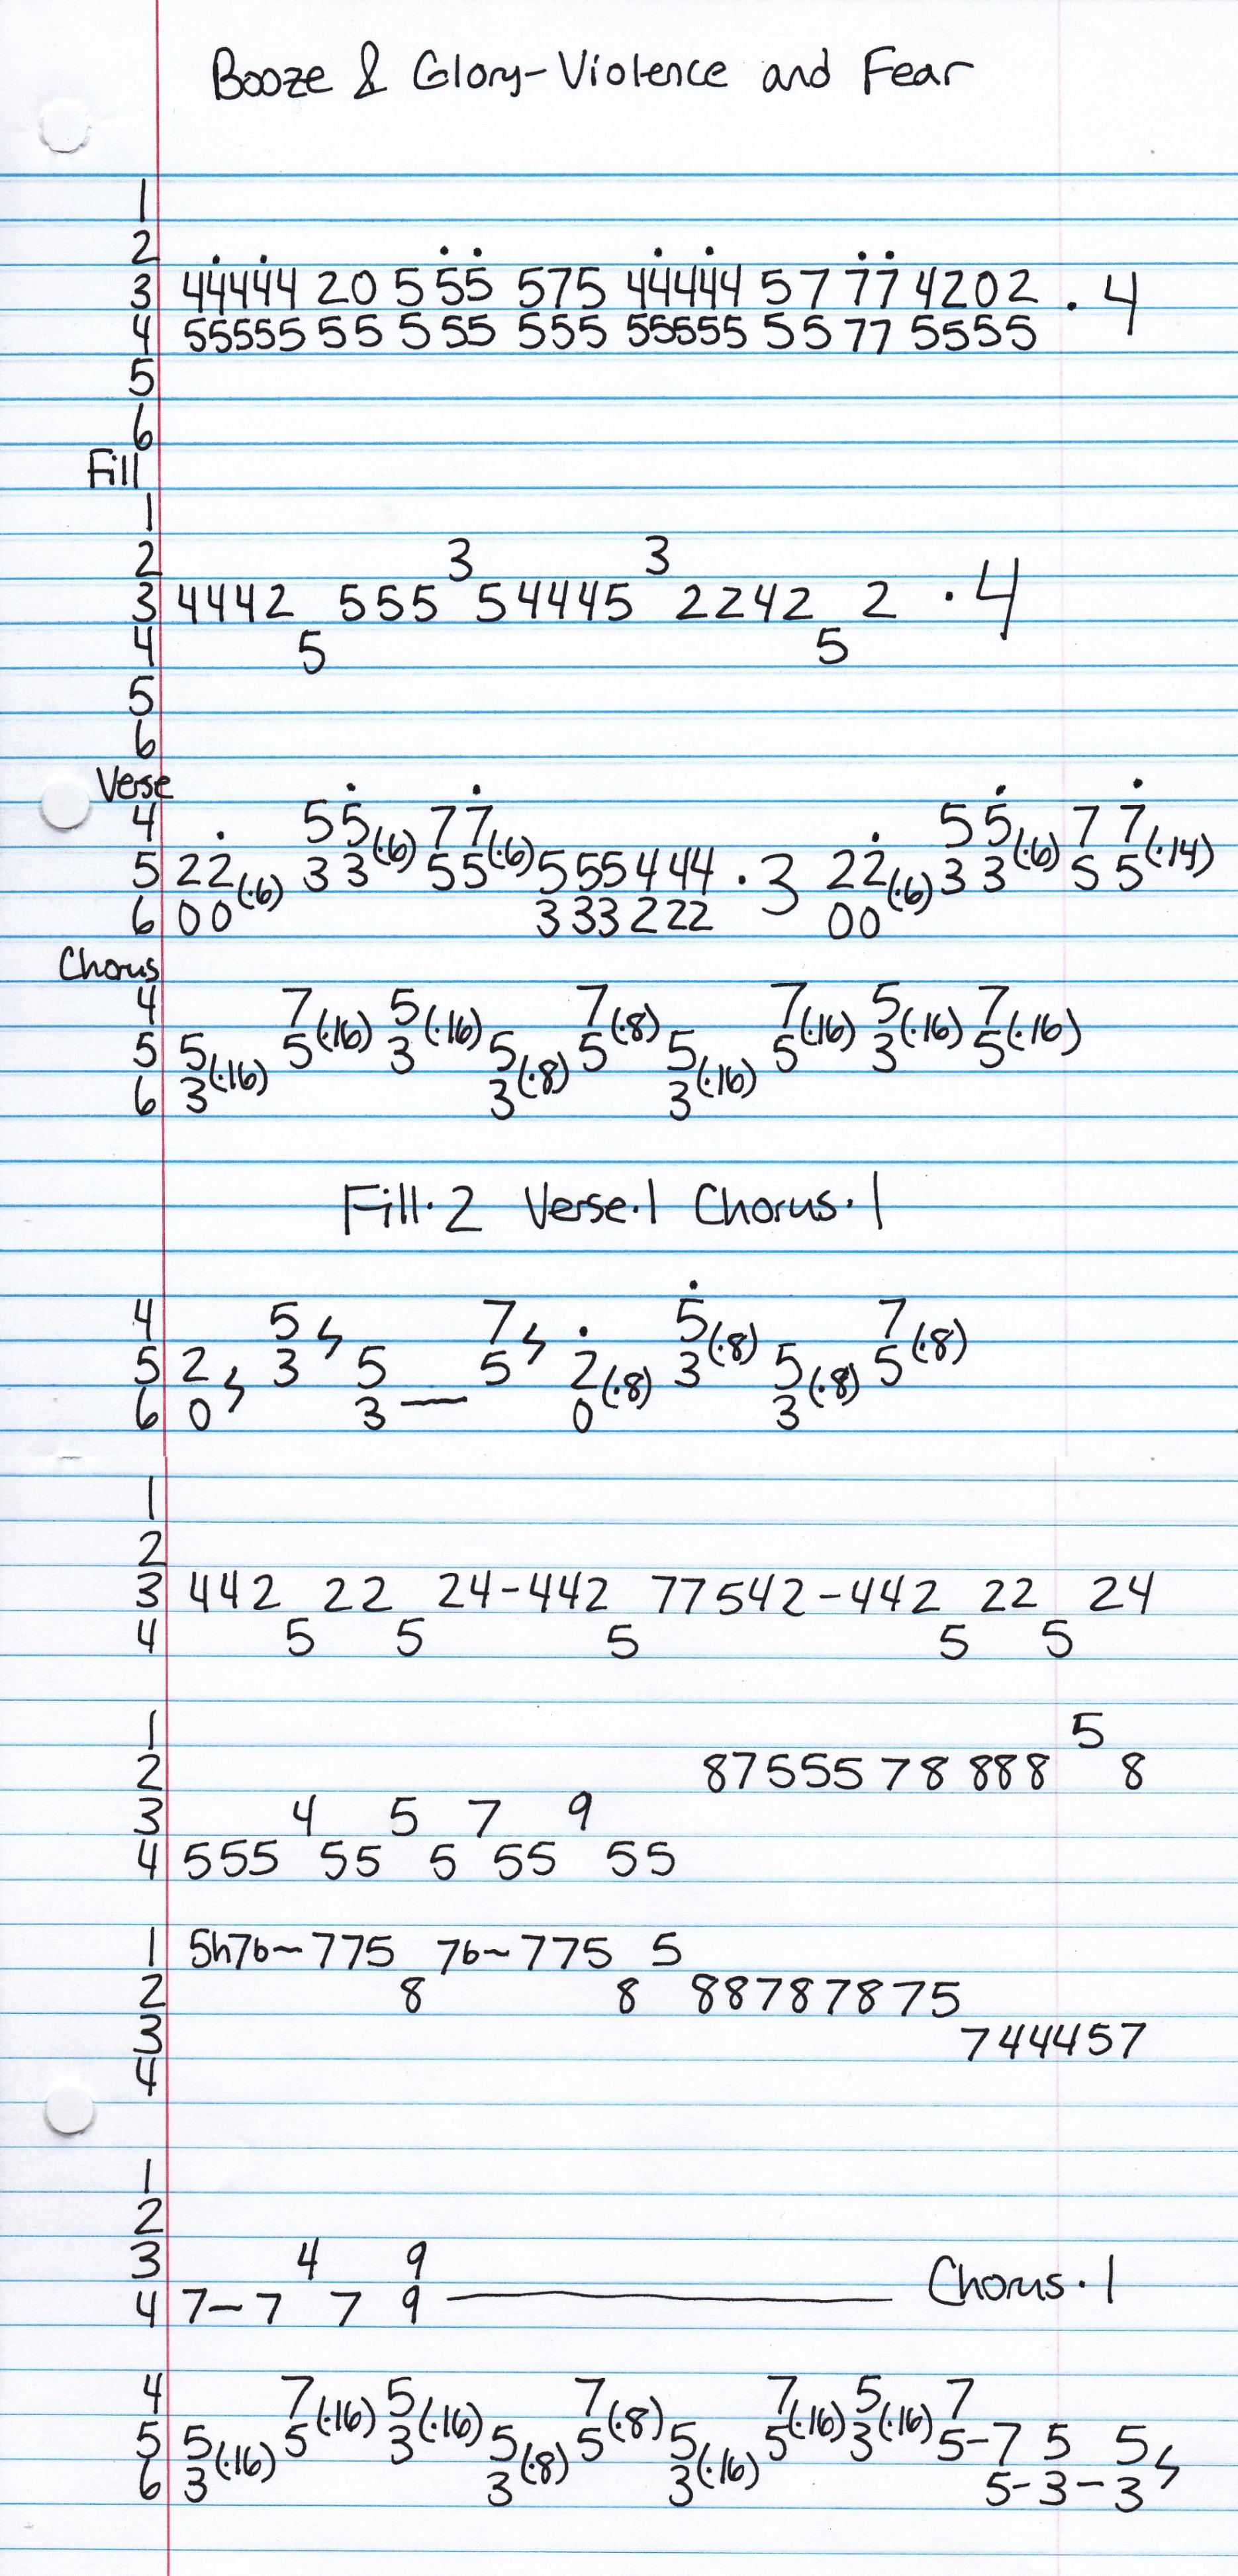 Booze & Glory-Violence and Fear
1
2
3 44444 20 5 55 575 44444 57 77 4202 · 4
4 55555 55 5 55 555 55555 55 77 5555
5
6
Fill
1
2 3 3
3 4442 555 54445 2242 2 · 4
4 5 5
5
6
Verse
4 55(·6) 77(·6) 55(·6) 77(·14)
5 22(·6) 33 55 555444 · 3 22(·6) 33 55
6 00 333222 00
Chorus
4 7(·16) 5(·16) 7(·8) 7(·16) 5(·16) 7(·16)
5 5(·16) 5 3 5(·8) 5 5(·16) 5 3 5
6 3 3 3
Fill·2 Verse·1 Chorus·1
4 5 7 5(·8) 7(·8)
5 2 3 5 5 2(·8) 3 5(·8) 5
6 0 3 — 0 3
1
2
3 442 22 24-442 77542-442 22 24
4 5 5 5 5 5
1 5
2 87555 78 888 8
3 4 5 7 9
4 555 55 5 55 55
1 5h7b~775 7b~775 5
2 8 8 88787875
3 744457
4
1
2
3 4 9
4 7-7 7 9 — Chorus·1
4 7(·16) 5(·16) 7(·8) 7(·16) 5(·16) 7
5 5(·16) 5 3 5(·8) 5 5(·16) 5 3 5-7 5 5
6 3 3 3 5-3-3